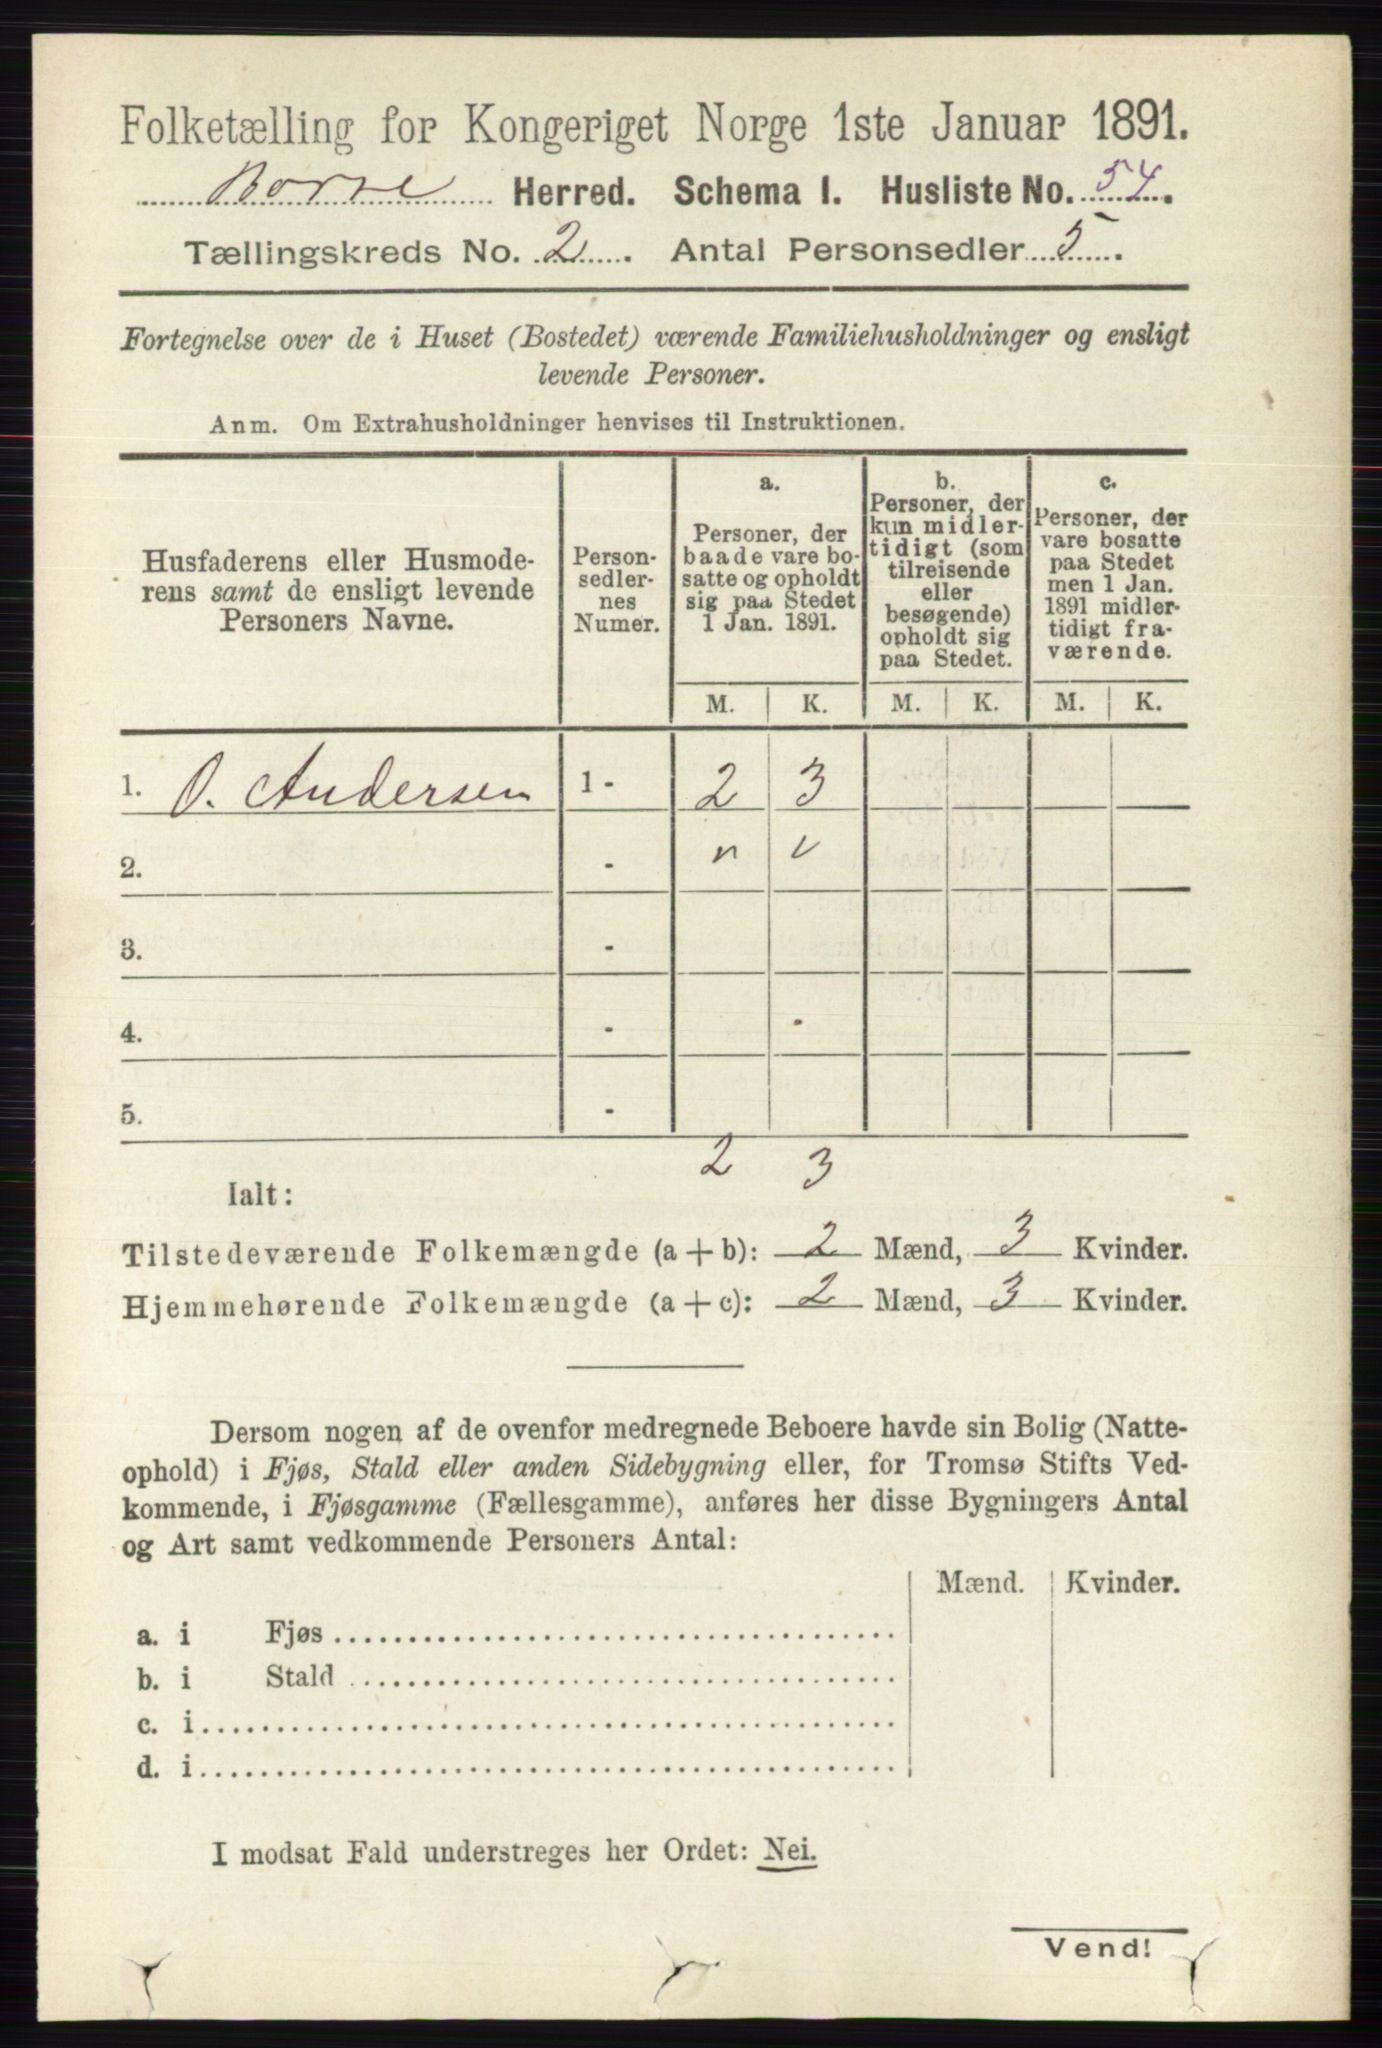 Folketælling for Kongeriget Norge 1ste Januar 1891.
Borre Herred. Schema I. Husliste No. 54.
Tællingskreds No. 2. Antal Personsedler 5.
Fortegnelse over de i Huset (Bostedet) værende Familiehusholdninger og ensligt
levende Personer.
Anm. Om Extrahusholdninger henvises til Instruktionen.
Husfaderens eller Husmode-
rens samt de ensligt levende
Personers Navne.
Person-
sedler-
nes
Numer.
a.
Personer, der
baade vare bo-
satte og opholdt
sig paa Stedet
1 Jan. 1891.
b.
Personer, der
kun midler-
tidigt (som
tilreisende
eller
besøgende)
opholdt sig
paa Stedet.
c.
Personer, der
vare bosatte
paa Stedet
men 1 Jan.
1891 midler-
tidigt fra-
værende.
M. K. M. K. M. K.
1. O. Andersen 1 - 2 3
2. -
3. -
4. -
5. -
2 3
Ialt:
Tilstedeværende Folkemængde (a + b): 2 Mænd, 3 Kvinder.
Hjemmehørende Folkemængde (a + c): 2 Mænd, 3 Kvinder.
Dersom nogen af de ovenfor medregnede Beboere havde sin Bolig (Natte-
ophold) i Fjøs, Stald eller anden Sidebygning eller, for Tromsø Stifts Ved-
kommende, i Fjøsgamme (Fællesgamme), anføres her disse Bygningers Antal
og Art samt vedkommende Personers Antal:
Mænd. Kvinder.
a. i Fjøs
b. i Stald
c. i
d. i
I modsat Fald understreges her Ordet: Nei.
Vend!